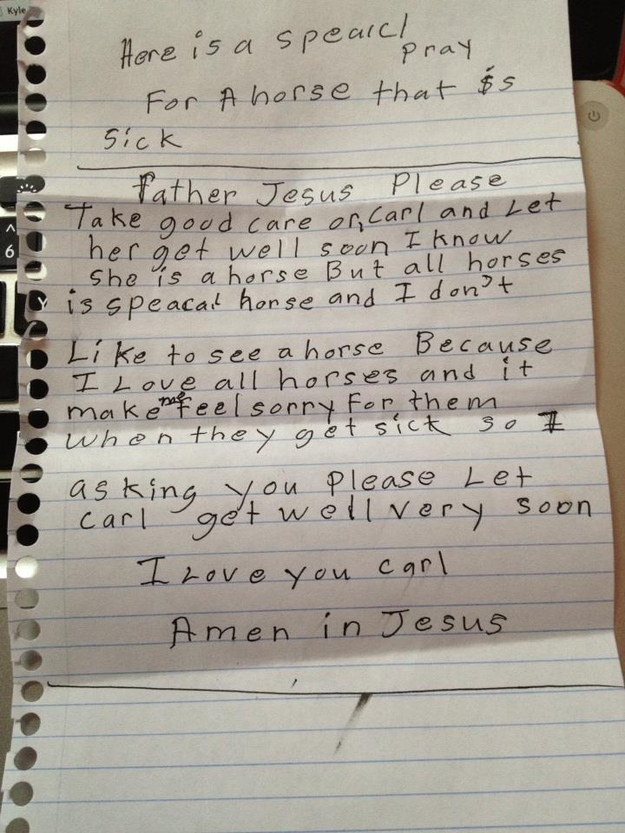 Kyle
Here is a spearcl
pray
For A horse that is
sick
Father Jesus Please
Take good care on Carl and Let
her get well soon I know
she is a horse But all horses
is speacat horse and I don't
Like to see a horse Because
I Love all horses and it
make me feel sorry for them
when they get sick so I
asking you please Let
carl get well very soon
I Love you carl
Amen in Jesus
^
6